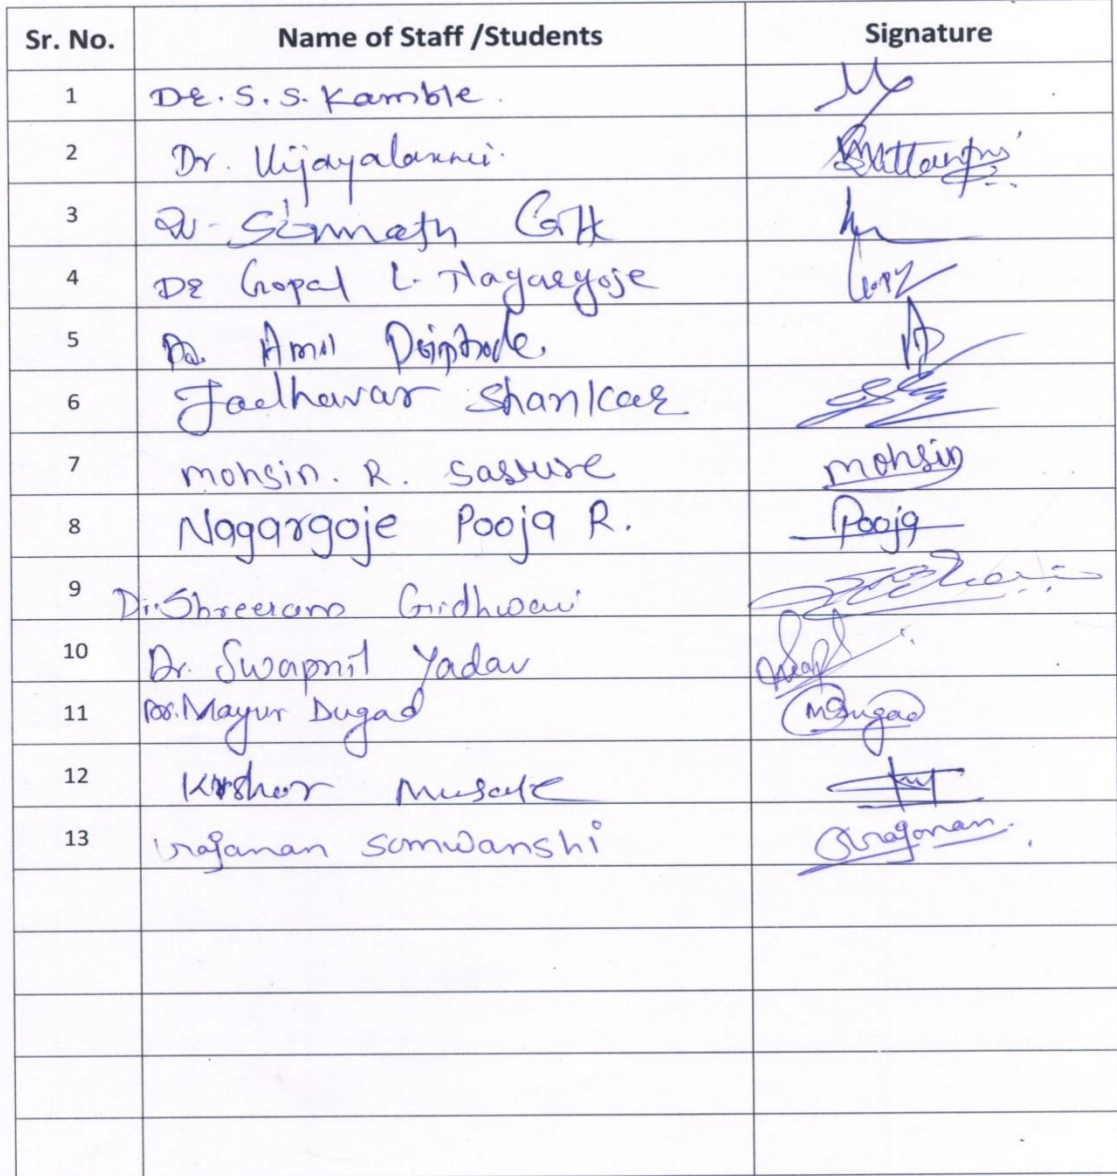 Sr. No. Name of Staff /Students Signature
1 Dr. S. S. Kamble.
2 Dr. Vijayalaxmi.
3 Dr. Somnath
4 Dr Gopal L. Nagargoje
5 Dr. Amol
6 Jadhavar Shankar
7 mohsin. R. Sasture mohsin
8 Nagargoje Pooja R. Pooja
9 Dr. Shreeram Girdhwani
10 Dr. Swapnil Yadav
11 Dr. Mayur Dugad MDugad
12 Kishor Musale
13 Gajanan Somwanshi Gajanan.